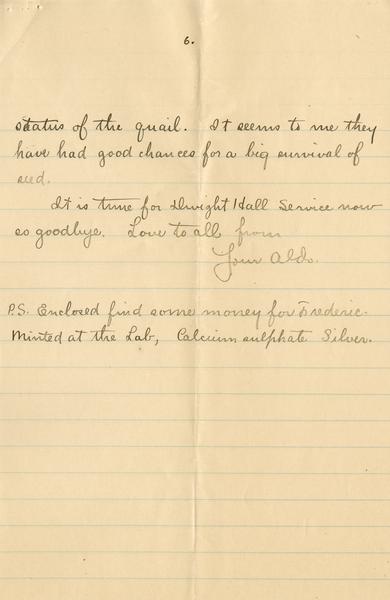 6.
status of the quail. It seems to me they
have had good chances for a big survival of
seed.
It is time for Dwight Hall Service now
so goodbye. Love to all from
Your Aldo.
P.S. Enclosed find some money for Frederic.
Minted at the Lab, Calcium sulphate Silver.